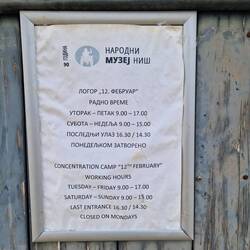 90 ГОДИНА
НАРОДНИ
МУЗЕЈ НИШ
ЛОГОР „12. ФЕБРУАР"
РАДНО ВРЕМЕ
УТОРАК – ПЕТАК 9.00 – 17.00
СУБОТА – НЕДЕЉА 9.00 – 15.00
ПОСЛЕДЊИ УЛАЗ 16.30 / 14.30
ПОНЕДЕЉКОМ ЗАТВОРЕНО
CONCENTRATION CAMP "12TH FEBRUARY"
WORKING HOURS
TUESDAY – FRIDAY 9.00 – 17.00
SATURDAY – SUNDAY 9.00 – 15.00
LAST ENTRANCE 16.30 / 14.30
CLOSED ON MONDAYS